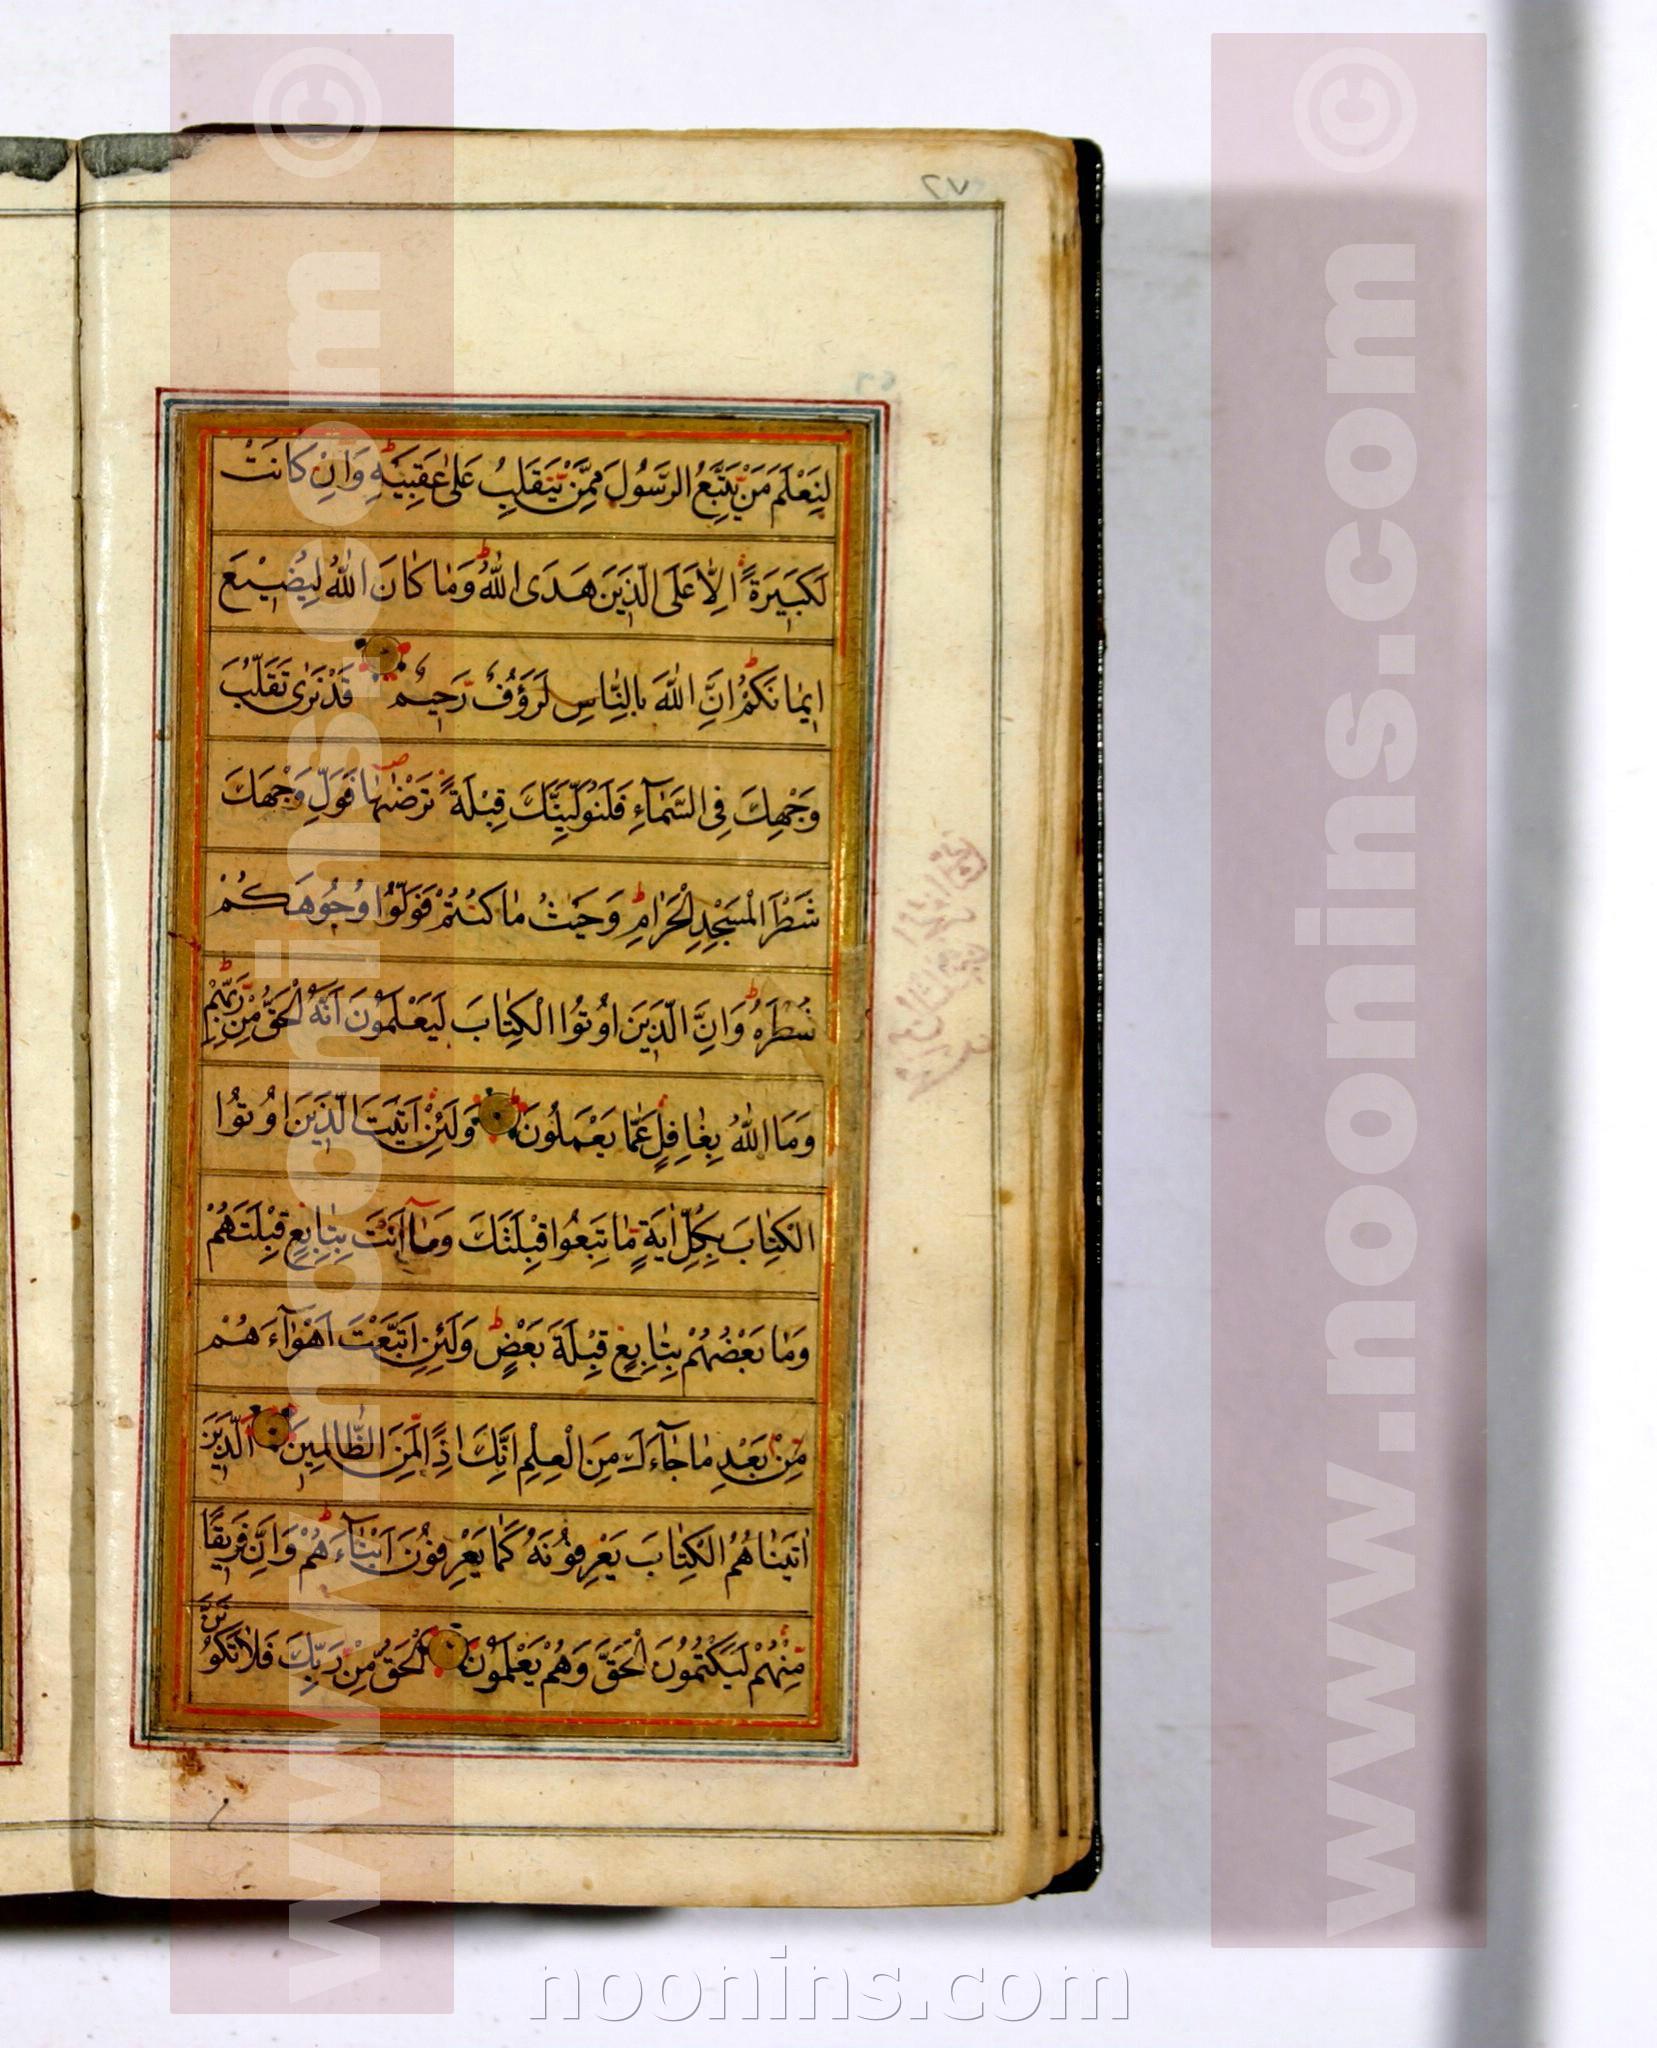 ٢٧
لِنَعْلَمَ مَنْ يَتَّبِعُ الرَّسُولَ مِمَّنْ يَنْقَلِبُ عَلىٰ عَقِبَيْهِ وَاِنْ كٰانَتْ
لَكَبِيرَةً اِلّٰا عَلَى الَّذِينَ هَدَى اللّٰهُ وَمٰا كٰانَ اللّٰهُ لِيُضِيعَ
اِيمٰانَكُمْ اِنَّ اللّٰهَ بِالنّٰاسِ لَرَؤُفٌ رَحِيمٌ قَدْ نَرٰى تَقَلُّبَ
وَجْهِكَ فِى السَّمٰآءِ فَلَنُوَلِّيَنَّكَ قِبْلَةً تَرْضٰيهٰا فَوَلِّ وَجْهَكَ
شَطْرَ الْمَسْجِدِ الْحَرٰامِ وَحَيْثُ مٰا كُنْتُمْ فَوَلُّوا وُجُوهَكُمْ
شَطْرَهُ وَاِنَّ الَّذِينَ اُوتُوا الْكِتٰابَ لَيَعْلَمُونَ اَنَّهُ الْحَقُّ مِنْ رَبِّهِمْ
وَمَا اللّٰهُ بِغٰافِلٍ عَمّٰا يَعْمَلُونَ وَلَئِنْ اَتَيْتَ الَّذِينَ اُوتُوا
الْكِتٰابَ بِكُلِّ اٰيَةٍ مٰا تَبِعُوا قِبْلَتَكَ وَمٰآ اَنْتَ بِتٰابِعٍ قِبْلَتَهُمْ
وَمٰا بَعْضُهُمْ بِتٰابِعٍ قِبْلَةَ بَعْضٍ وَلَئِنِ اتَّبَعْتَ اَهْوٰآءَهُمْ
مِنْ بَعْدِ مٰا جٰآءَكَ مِنَ الْعِلْمِ اِنَّكَ اِذًا لَمِنَ الظّٰالِمِينَ الَّذِينَ
اٰتَيْنٰاهُمُ الْكِتٰابَ يَعْرِفُونَهُ كَمٰا يَعْرِفُونَ اَبْنٰآءَهُمْ وَاِنَّ فَرِيقًا
مِنْهُمْ لَيَكْتُمُونَ الْحَقَّ وَهُمْ يَعْلَمُونَ الْحَقُّ مِنْ رَبِّكَ فَلٰا تَكُونَنَّ
www.noonins.com ©
www.noonins.com ©
noonins.com